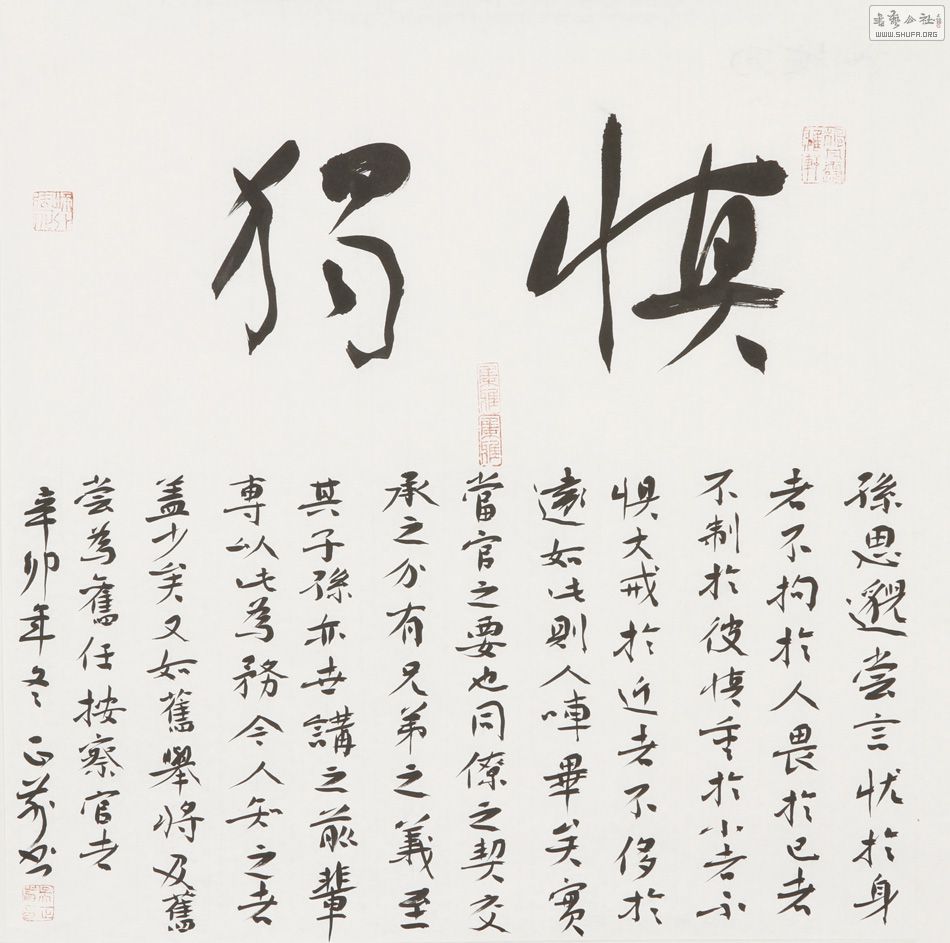 書藝公社
WWW.SHUFA.ORG
慎獨
孫思邈尝言忧於身
者不拘於人畏於己者
不制於彼慎重於小者不
惧大戒於近者不侈於
遠如此則人事畢矣實
當官之要也同僚之契交
承之分有兄弟之義至
其子孫亦世講之前輩
專以此為務今人知之者
盖少矣又如舊舉將及舊
尝為舊任按察官者
辛卯年冬正